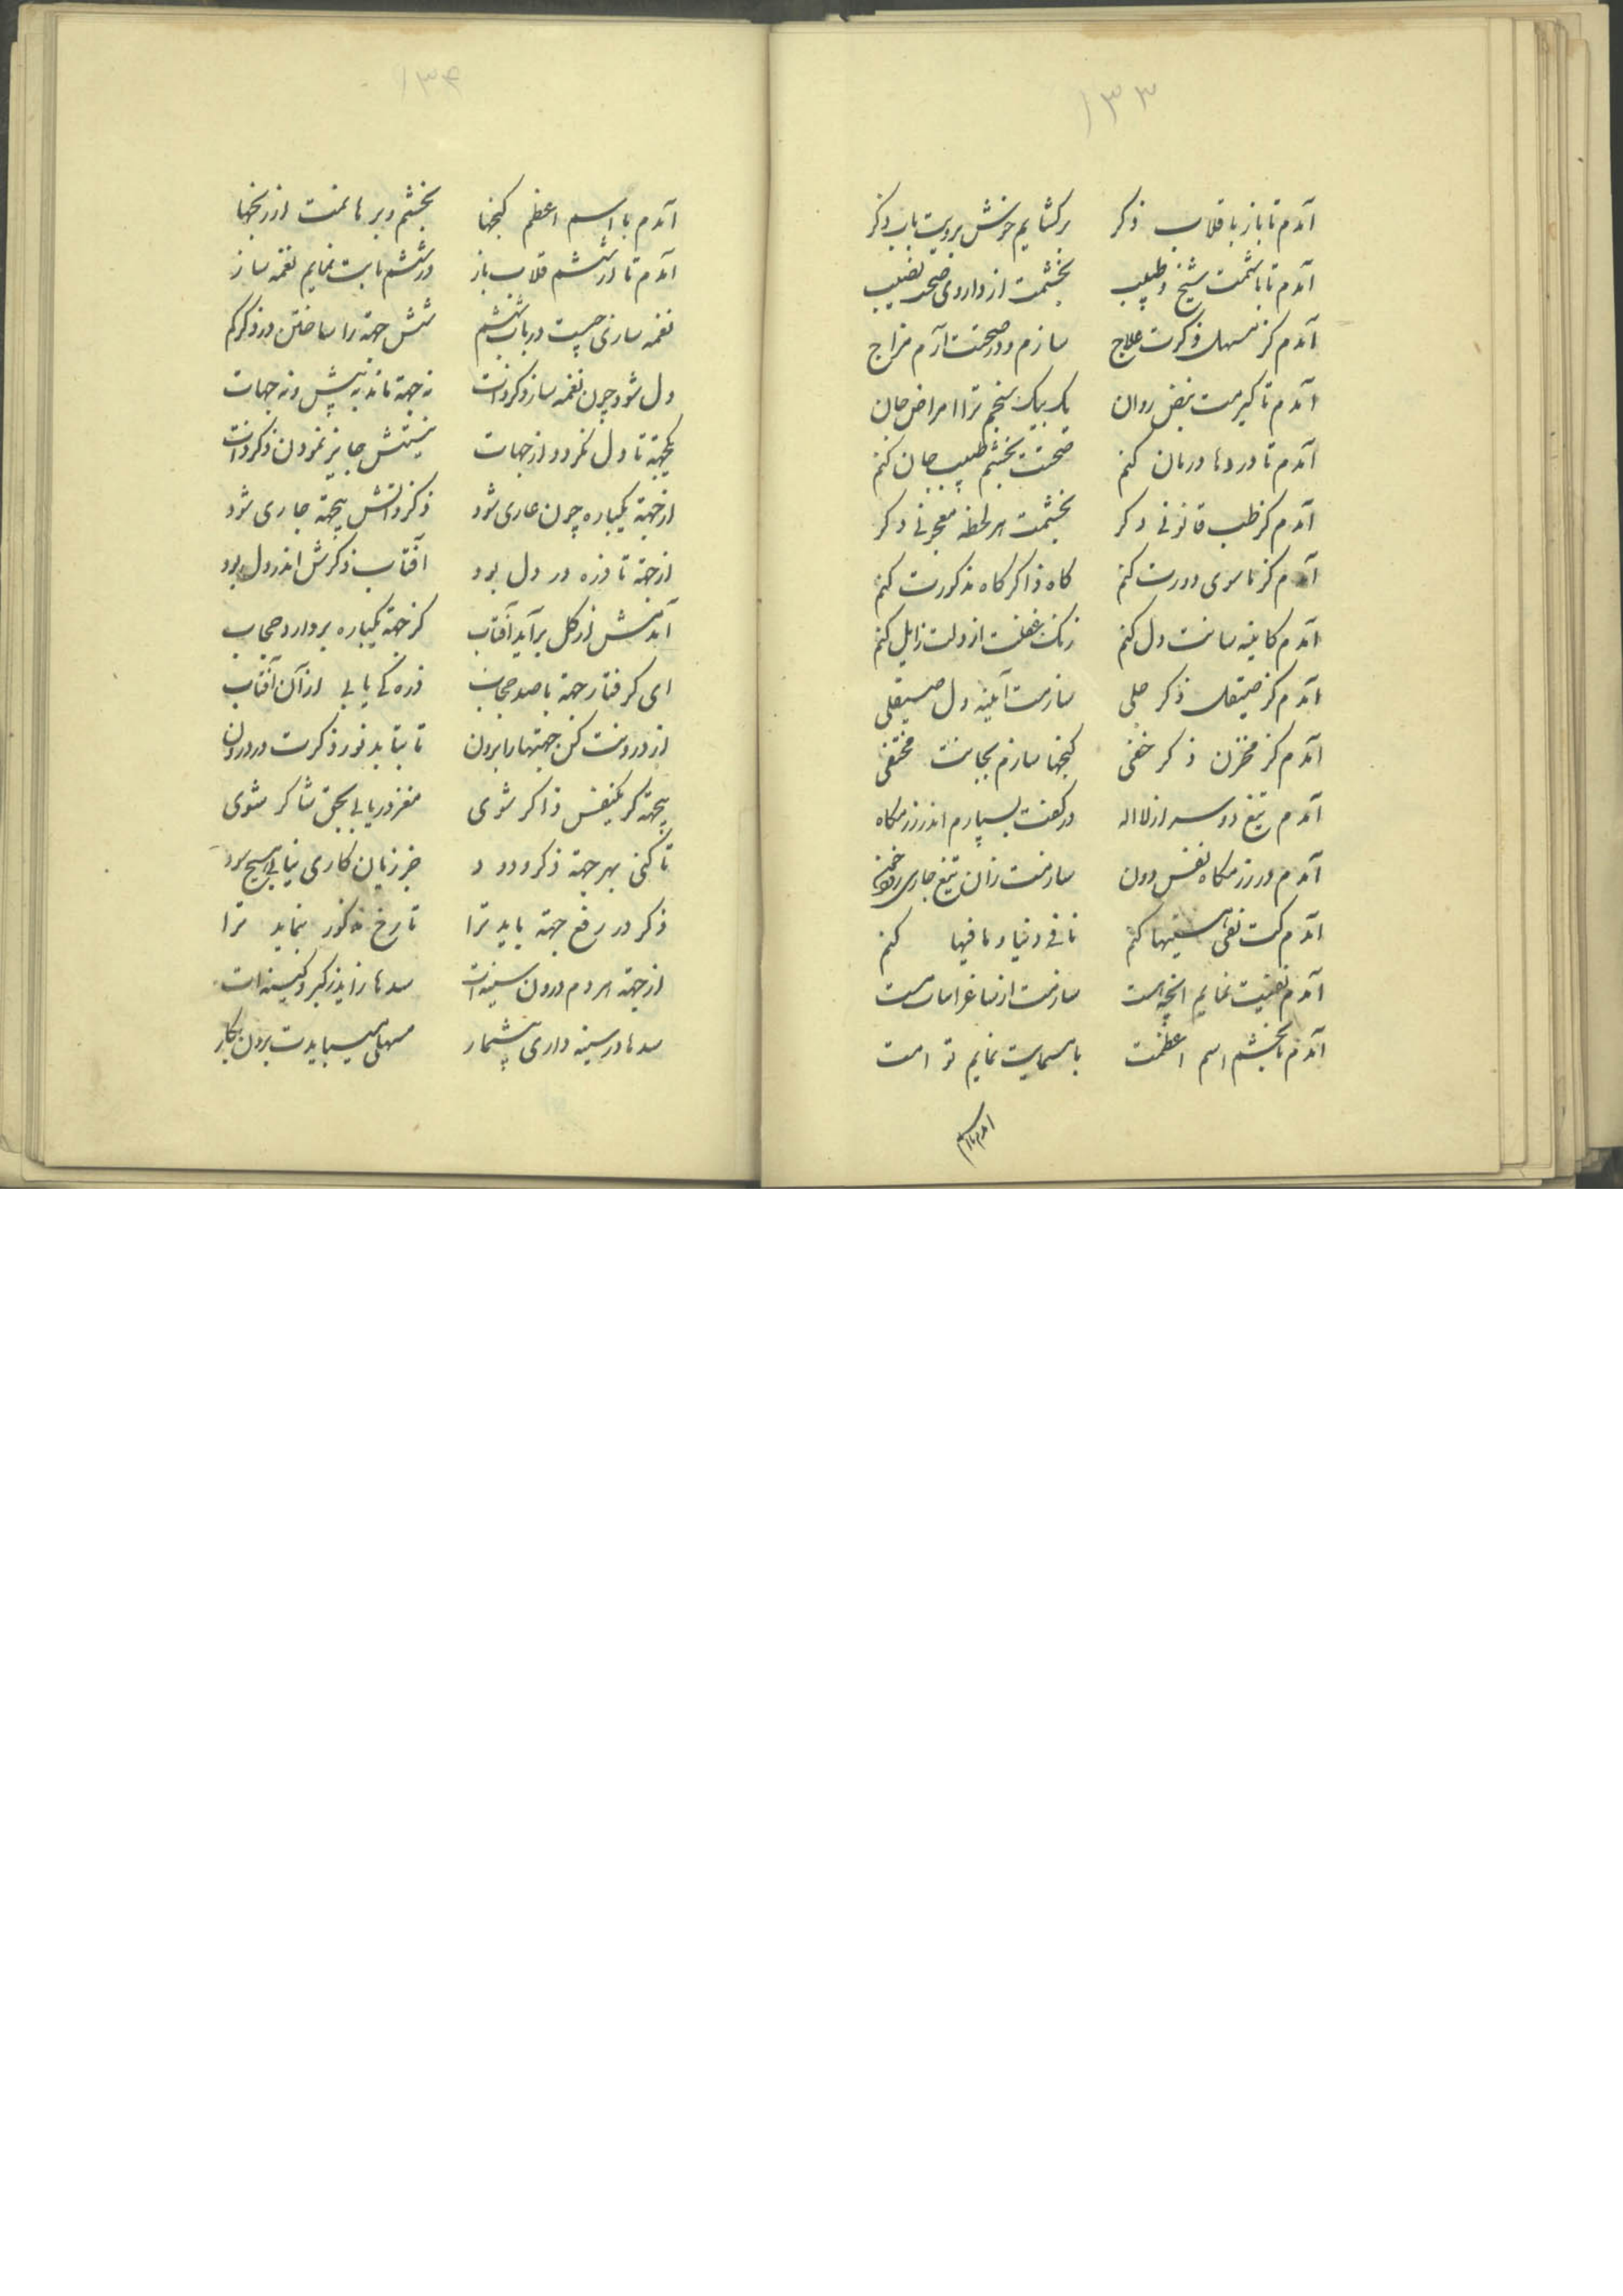 ۱۳۳
آمدم تا باز با قلاب ذکر برکشایم خوش برویت باب ذکر
آمدم تا باشمت شیخ و طبیب بخشمت از داروی صحت نصیب
آمدم کز مسهل ذکرت علاج سازم و در صحتت آرم مزاج
آمدم تا کیرمت نبض روان یک بیک سنجم ترا امراض جان
آمدم تا دردها درمان کنم صحتت بخشم طبیب جان کنم
آمدم کز طب قانونی دکر بخشمت هر لحظه معجونی دکر
آمدم کز ماسوی دورت کنم کاه ذاکر کاه مذکورت کنم
آمدم کاینه سانت دل کنم زنک غفلت از دلت زایل کنم
آمدم کز صیقل ذکر جلی سازمت آینه دل صیقلی
آمدم کز مخزن ذکر خفی کنجها سازم بجانت مختفی
آمدم تیغ دو سر از لا اله در کفت بسپارم اندر رزمکاه
آمدم در رزمکاه نفس دون سازمت زان تیغ جاری
آمدم کت نفی هستیها کنم نافی دنیا و مافیها کنم
آمدم نفییت نمایم انچه هست سازمت از ساغر اسات مست
آمدم تا بخشم اسم اعظمت با مسمایت نمایم توامت
امدم با اسم
۱۳۴
آمدم با اسم اعظم کنجها بخشم و برهانمت از رنجها
آمدم تا از ششم قلاب باز در ششم بابت نمایم نغمه ساز
نغمه سازی چیست در باب ششم شش جهته را ساختن در ذکر کم
دل شود چون نغمه ساز ذکر ذات نه جهته ماند به پیش و نه جهات
یکجهته تا دل نکردد از جهات نیستش جایز نمودن ذکر ذات
از جهته یکباره چون عاری شود ذکر ذاتش بیجهته جاری شود
از جهته تا ذره در دل بود آفتاب ذکرش اندر دل بود
آندمش از کل برآید آفتاب کز جهته یکباره بردارد حجاب
ای کرفتار جهته با صد حجاب ذره کی یابی از آن آفتاب
از درونت کن جهتها را برون تا بتابد نور ذکرت در درون
بیجهته کر یکنفس ذاکر شوی مغز دریابی بحق شاکر شوی
تا کنی بهر جهته ذکر ودود جز زیان کاری نیابی هیچ سود
ذکر در رفع جهته باید ترا تا رخ مذکور بنماید ترا
از جهته هر دم درون سینه ات سدها زاید ز کبر و کینه ات
سدها در سینه داری بیشمار مسهلی میبایدت بردن بکار